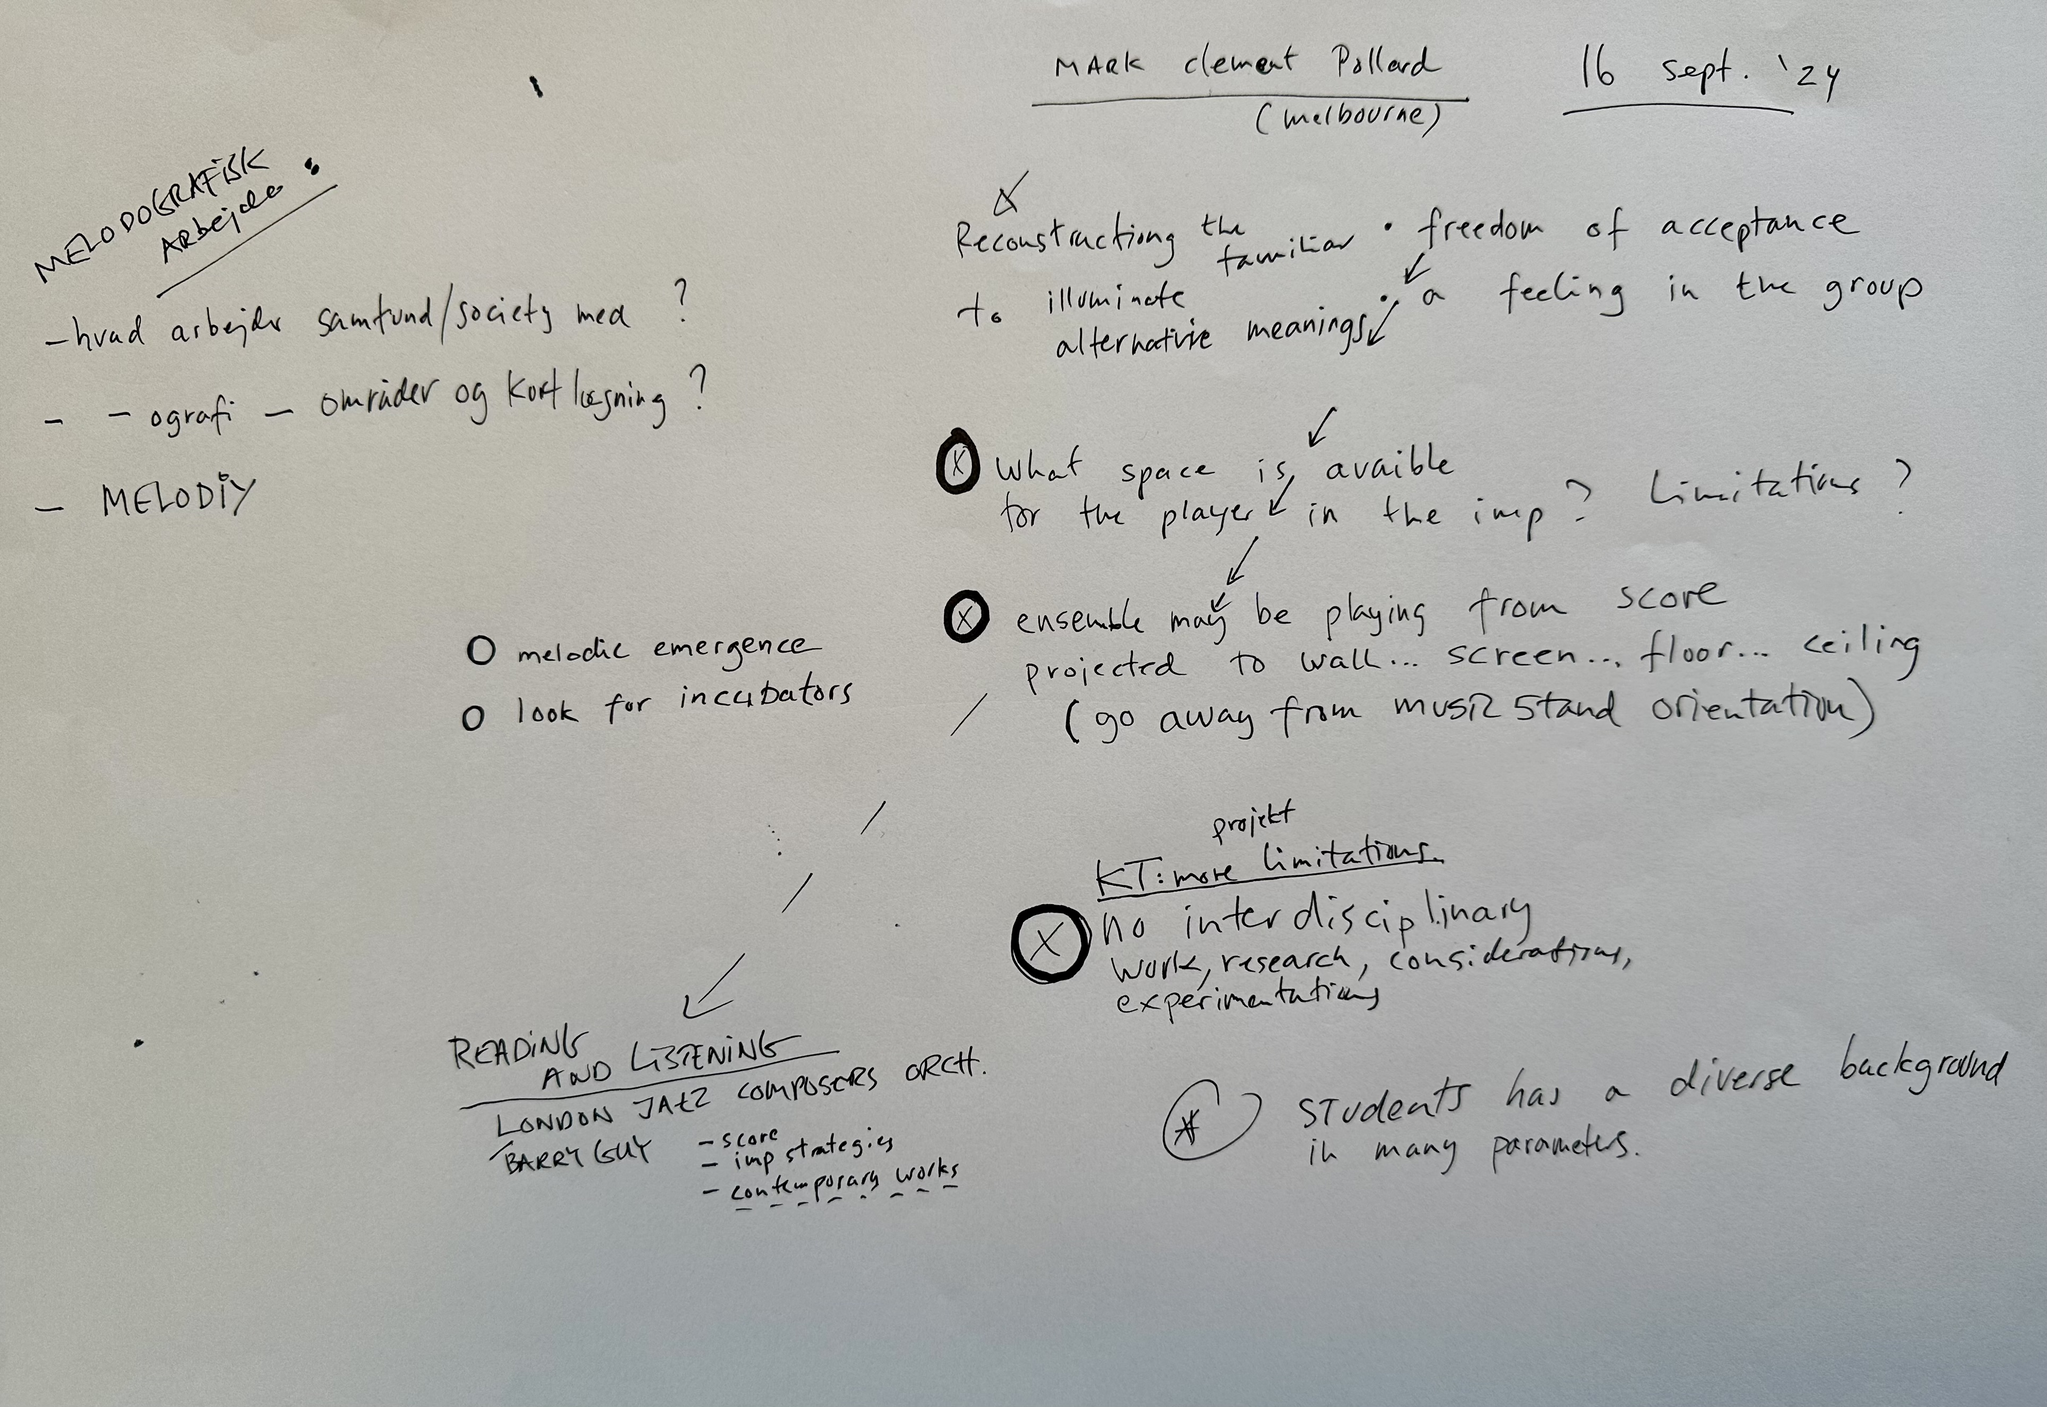 MARK clement Pollard
(melbourne)
16 sept. '24
MELODOGRAFISK
ARbejde :
- hvad arbejder samfund/society med ?
- - ografi - områder og kortlægning ?
- MELODIY
Reconstructiong the familiar
to illuminate
alternative meanings
• freedom of acceptance
• a feeling in the group
X What space is avaible
for the player in the imp? Limitations ?
X ensemble may be playing from score
projected to wall... screen... floor... ceiling
(go away from music stand orientation)
O melodic emergence
O look for incubators
projekt
KT: more limitations.
X no interdisciplinary
work, research, considerations,
experimentations
READING
AND LISTENING
LONDON JAZZ COMPOSERS ORCH.
BARRY GUY
- score
- imp strategies
- contemporary works
* STUdents has a diverse background
in many parameters.